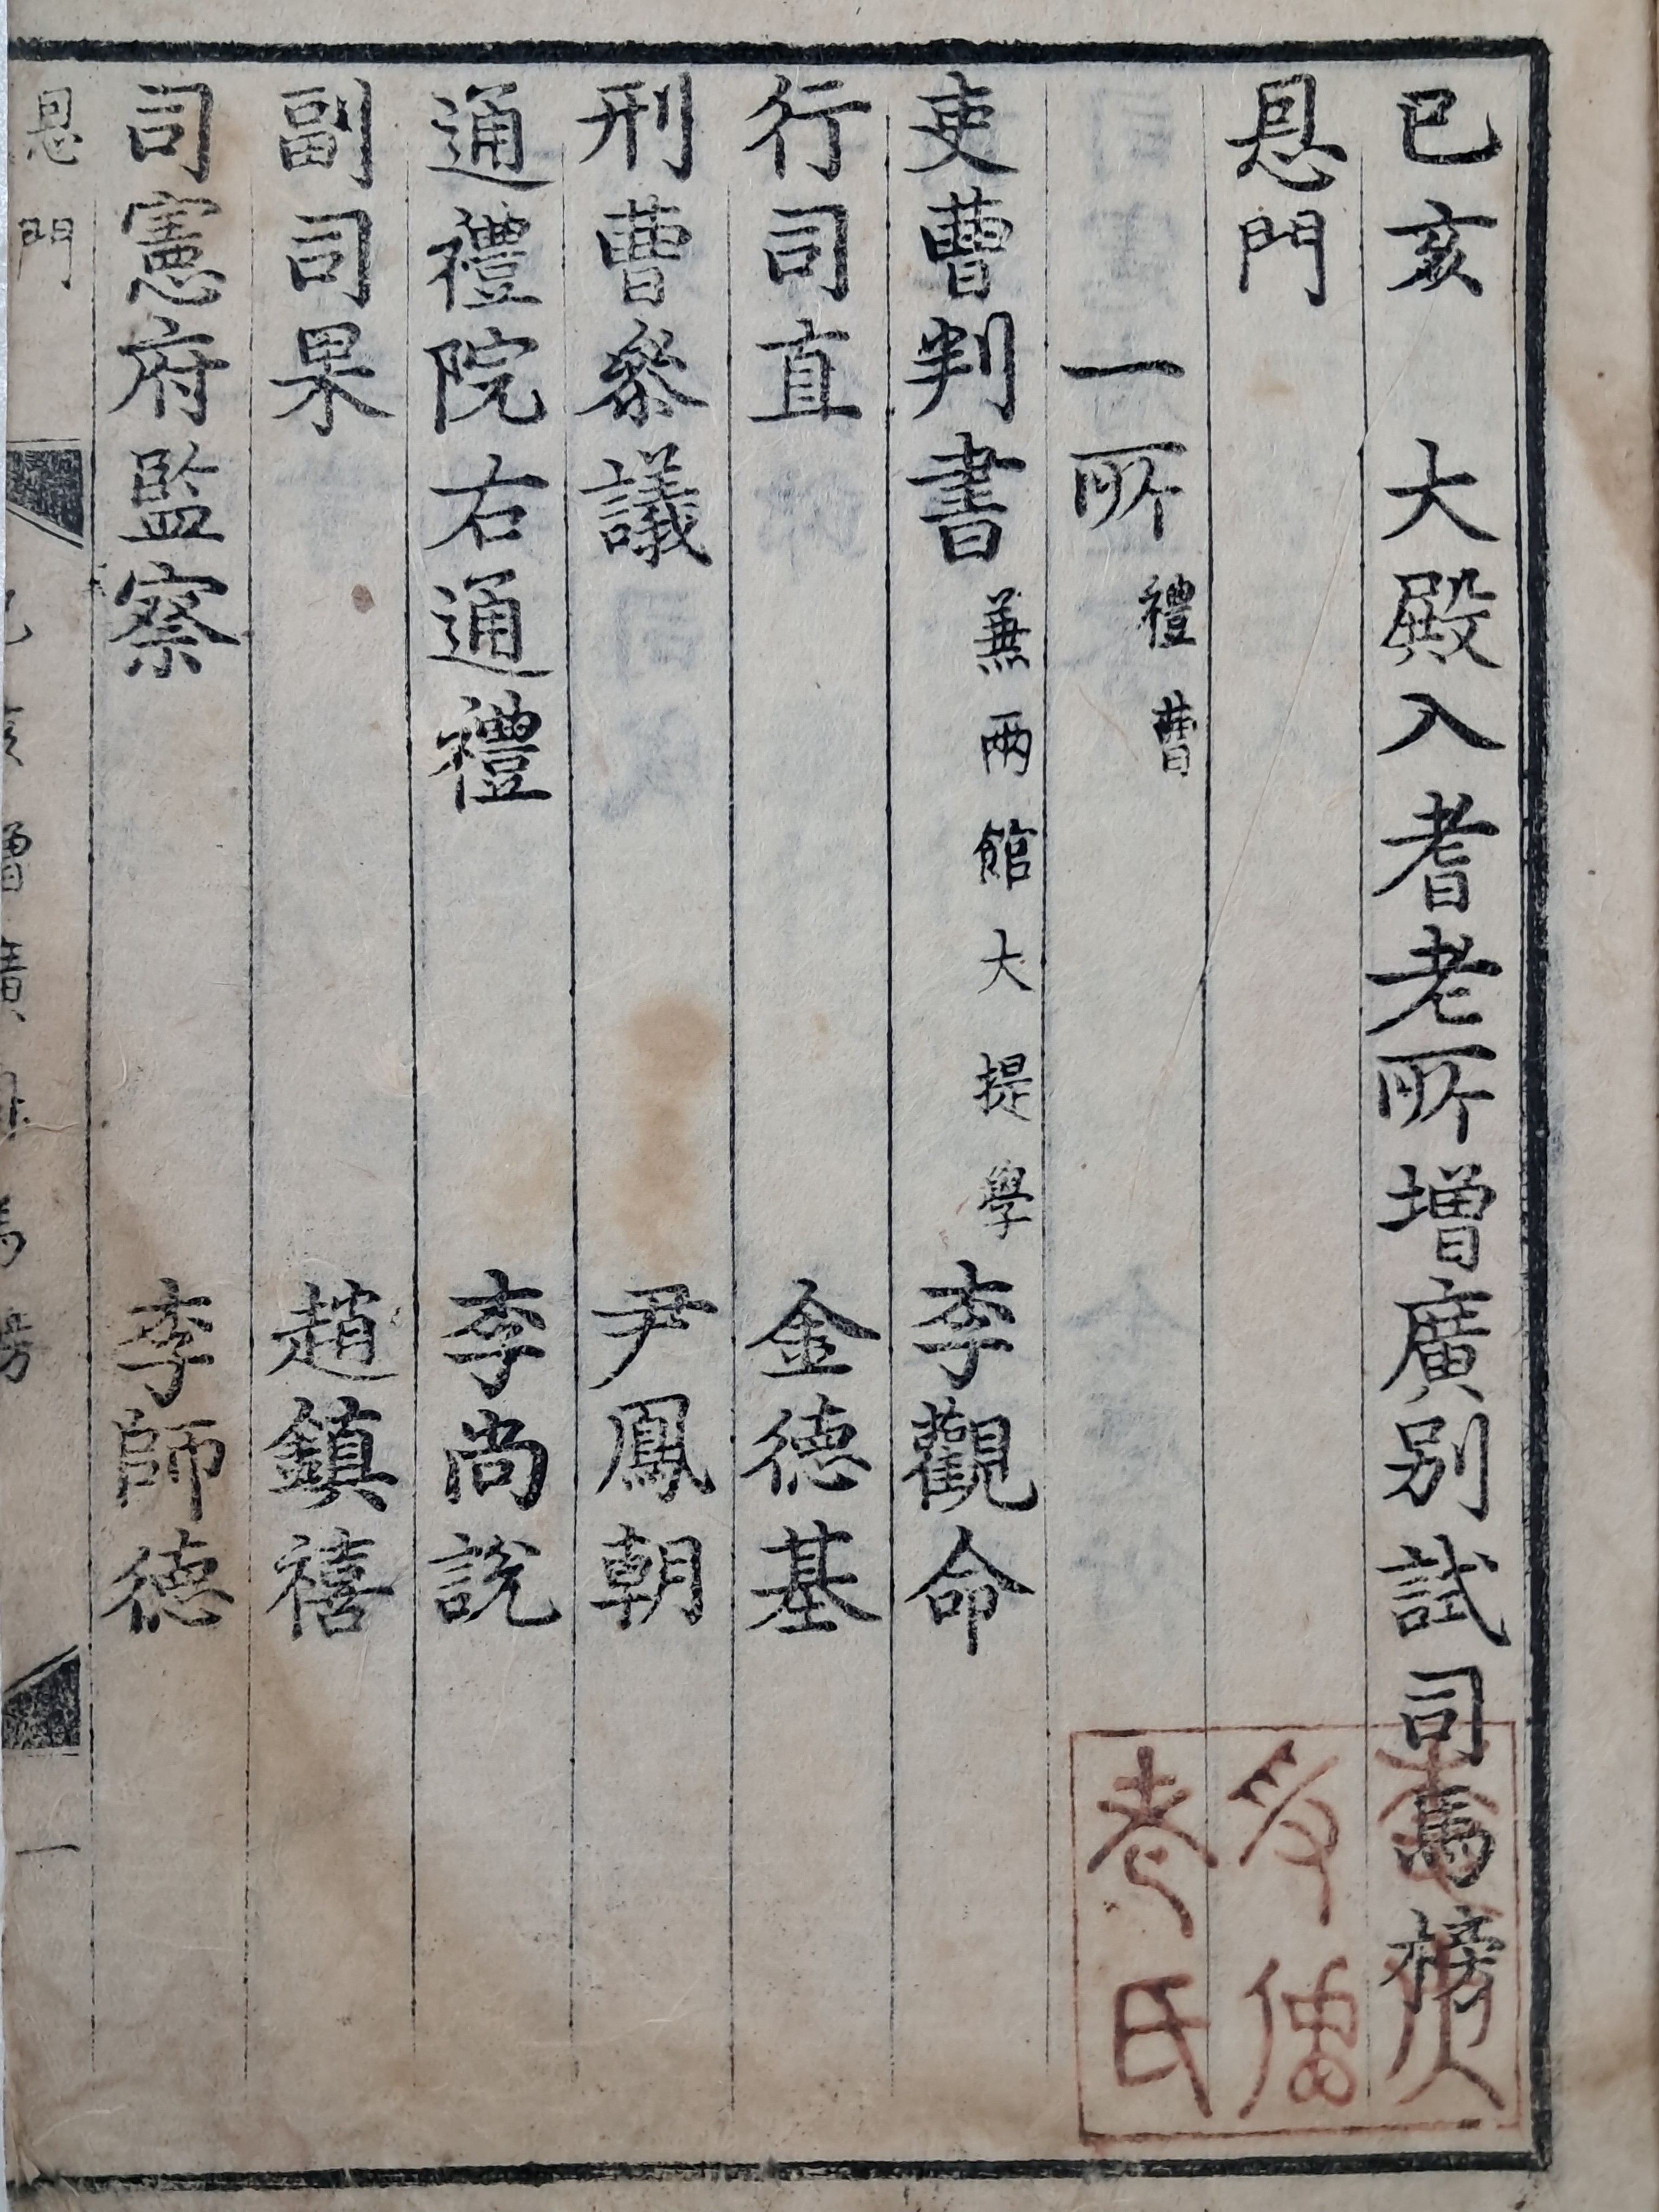 己亥 大殿入耆老所增廣別試司馬榜
恩門
一所 禮曹
吏曹判書 兼兩館大提學 李觀命
行司直 金德基
刑曹參議 尹鳳朝
通禮院右通禮 李尚說
副司果 趙鎮禧
司憲府監察 李師德
恩門 一